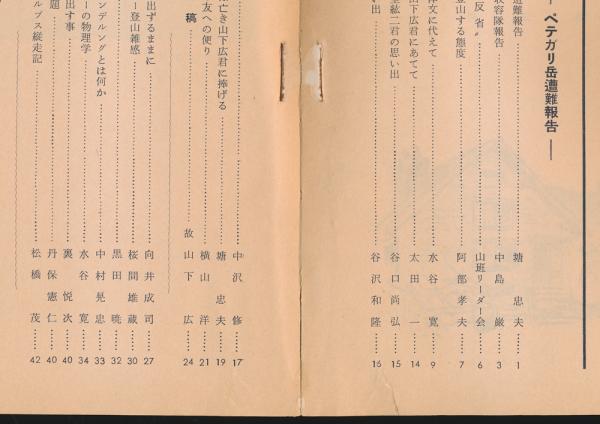 ペテガリ岳遭難報告
遭難報告 塘忠夫 1
収容隊報告 中島巌 3
反省〟 山班リーダー会 6
登山する態度 阿部孝夫 7
文に代えて 水谷寛 9
山下広君にあてて 太田一 14
紘二君の思い出 谷口尚弘 15
い出 谷沢和隆 16
中沢修 17
亡き山下広君に捧げる 塘忠夫 19
友への便り 横山洋 21
稿 故山下広 24
出ずるままに 向井成司 27
ー登山雑感 桜間雄蔵 30
黒田暁 32
ンデルングとは何か 中村晃忠 33
ーの物理学 水谷寛 34
出す事 裏悦次 40
題 丹保憲仁 40
ルプス縦走記 松橋茂 42